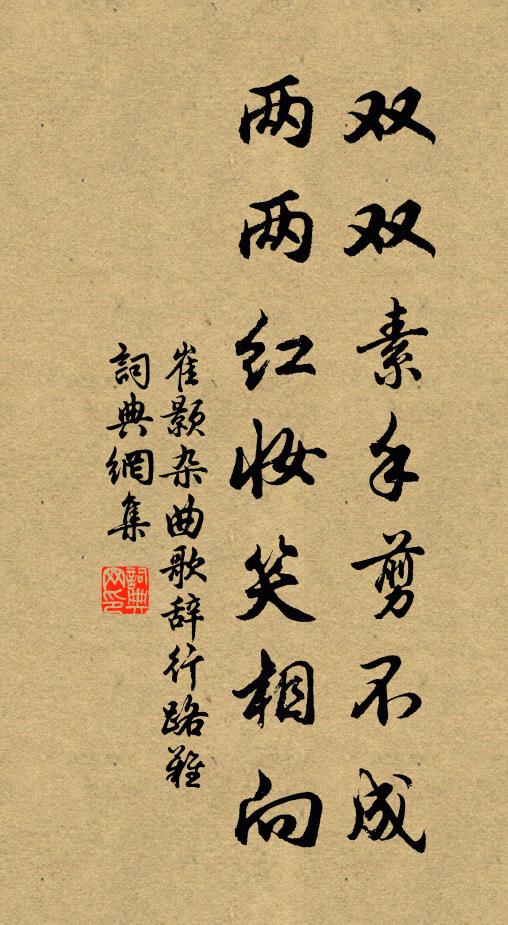 双双素手剪不成
两两红妆笑相向
崔颢杂曲歌辞行路难
詞典網集
詞典网印